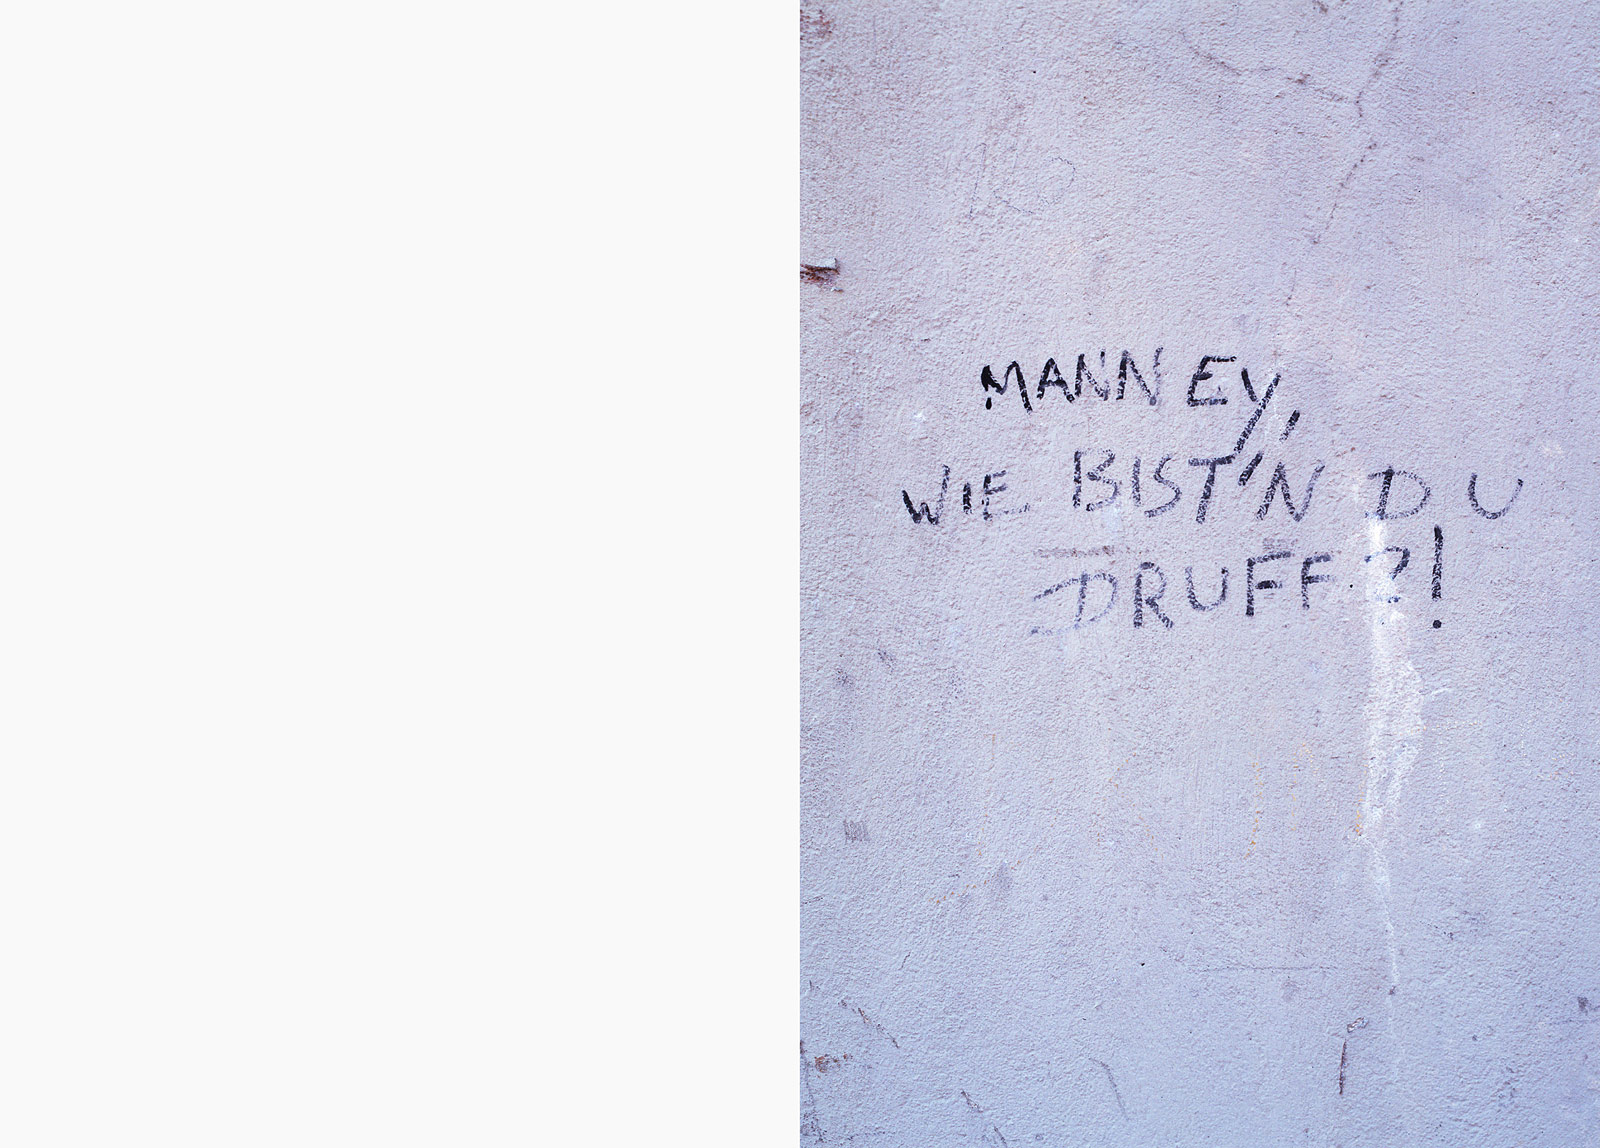 MANN EY,
WIE BIST'N DU
DRUFF?!